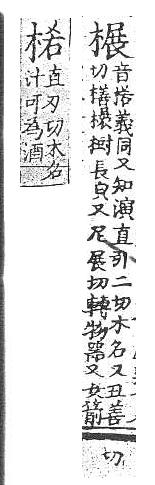 榐
音搭義同又知演直引二切木名又丑善
切橏榐樹長皃又尼展切轉物器又女箭
切
直刃切木名
汁可為酒